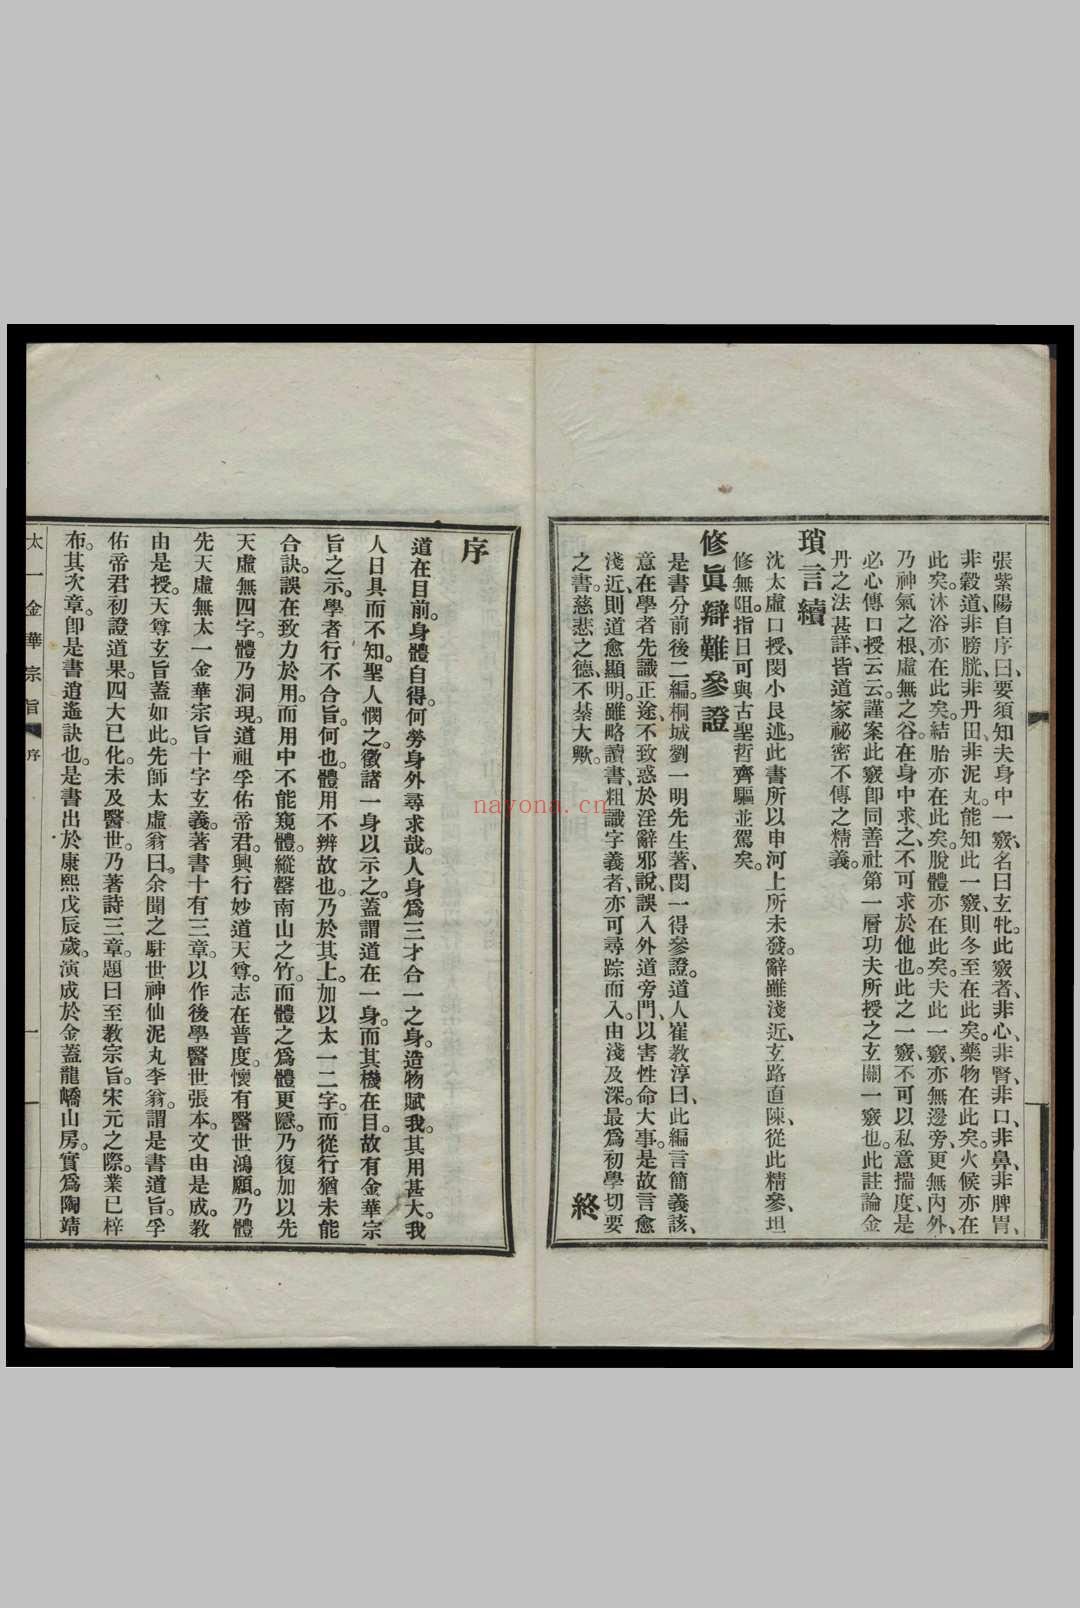 張紫陽自序曰、要須知夫身中一竅、名曰玄牝。此竅者、非心、非腎、非口、非鼻、非脾胃、
非穀道、非膀胱、非丹田、非泥丸。能知此一竅、則冬至在此矣。藥物在此矣。火候亦在
此矣。沐浴亦在此矣。結胎亦在此矣。脫體亦在此矣。夫此一竅、亦無邊旁、更無內外、
乃神氣之根、虛無之谷。在身中求之、不可求於他也。此之一竅、不可以私意揣度、是
必心傳口授云云。謹案此竅卽同善社第一層功夫所授之玄關一竅也。此註論金
丹之法甚詳、皆道家祕密不傳之精義。
瑣言續
沈太虛口授、閔小艮述。此書所以申河上所未發。辭雖淺近、玄路直陳、從此精參、坦
修無阻。指日可與古聖哲齊驅並駕矣。
修眞辯難參證
是書分前後二編。桐城劉一明先生著、閔一得參證。道人崔教淳曰、此編言簡義該、
意在學者先識正途、不致惑於淫辭邪說、誤入外道旁門、以害性命大事。是故言愈
淺近、則道愈顯明。雖略讀書、粗識字義者、亦可尋踪而入。由淺及深。最爲初學切要
之書。慈悲之德、不綦大歟。
終
序
道在目前。身體自得。何勞身外尋求哉。人身爲三才合一之身。造物賦我。其用甚大。我
人日具而不知。聖人憫之。徵諸一身以示之。蓋謂道在一身。而其機在目。故有金華宗
旨之示。學者行不合旨。何也。體用不辨故也。乃於其上。加以太一二字。而從行猶未能
合訣。誤在致力於用。而用中不能窺體。縱罄南山之竹。而體之爲體更隱。乃復加以先
天虛無四字。體乃洞現。道祖孚佑帝君。興行妙道天尊。志在普度。懷有醫世鴻願。乃體
先天虛無太一金華宗旨十字玄義。著書十有三章。以作後學醫世張本。文由是成。教
由是授。天尊玄旨蓋如此。先師太虛翁曰。余聞之駐世神仙泥丸李翁。謂是書道旨。孚
佑帝君初證道果。四大已化。未及醫世。乃著詩三章。題曰至教宗旨。宋元之際。業已梓
布。其次章。卽是書逍遙訣也。是書出於康熙戊辰歲。演成於金蓋龍嶠山房。實爲陶靖
太一金華宗旨
序
一
nayona.cn